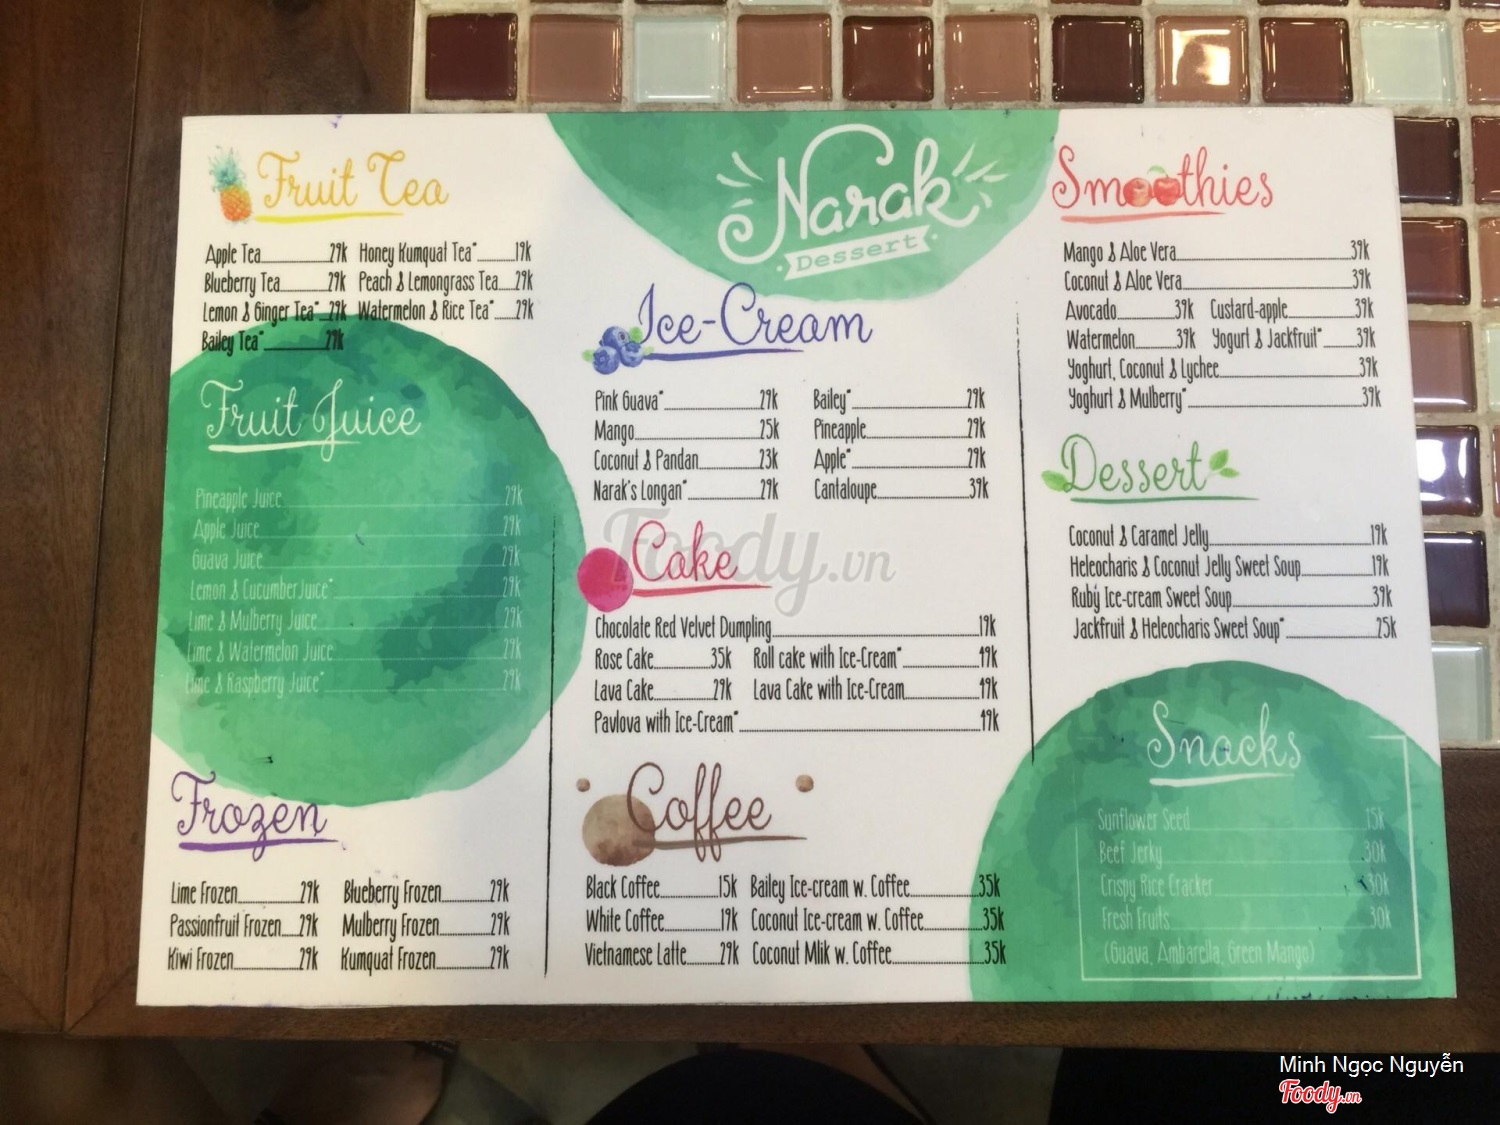 Fruit Tea
Apple Tea 29k Honey Kumquat Tea* 19k
Blueberry Tea 29k Peach & Lemongrass Tea 29k
Lemon & Ginger Tea* 29k Watermelon & Rice Tea* 29k
Bailey Tea* 29k
Fruit Juice
Pineapple Juice 29k
Apple Juice 29k
Guava Juice 29k
Lemon & Cucumber Juice* 29k
Lime & Mulberry Juice 29k
Lime & Watermelon Juice 29k
Lime & Raspberry Juice* 29k
Frozen
Lime Frozen 29k Blueberry Frozen 29k
Passionfruit Frozen 29k Mulberry Frozen 29k
Kiwi Frozen 29k Kumquat Frozen 29k
Narak
Dessert
Ice-Cream
Pink Guava* 29k Bailey* 29k
Mango 25k Pineapple 29k
Coconut & Pandan 23k Apple* 29k
Narak's Longan* 29k Cantaloupe 39k
Cake
Chocolate Red Velvet Dumpling 19k
Rose Cake 35k Roll cake with Ice-Cream* 49k
Lava Cake 29k Lava Cake with Ice-Cream 49k
Pavlova with Ice-Cream* 49k
Coffee
Black Coffee 15k Bailey Ice-cream w. Coffee 35k
White Coffee 19k Coconut Ice-cream w. Coffee 35k
Vietnamese Latte 29k Coconut Mlik w. Coffee 35k
Smoothies
Mango & Aloe Vera 39k
Coconut & Aloe Vera 39k
Avocado 39k Custard-apple 39k
Watermelon 39k Yogurt & Jackfruit* 39k
Yoghurt, Coconut & Lychee 39k
Yoghurt & Mulberry* 39k
Dessert
Coconut & Caramel Jelly 19k
Heleocharis & Coconut Jelly Sweet Soup 19k
Ruby Ice-cream Sweet Soup 39k
Jackfruit & Heleocharis Sweet Soup* 25k
Snacks
Sunflower Seed 15k
Beef Jerky 30k
Crispy Rice Cracker 30k
Fresh Fruits 30k
(Guava, Ambarella, Green Mango)
Foody.vn
Minh Ngọc Nguyễn
Foody.vn